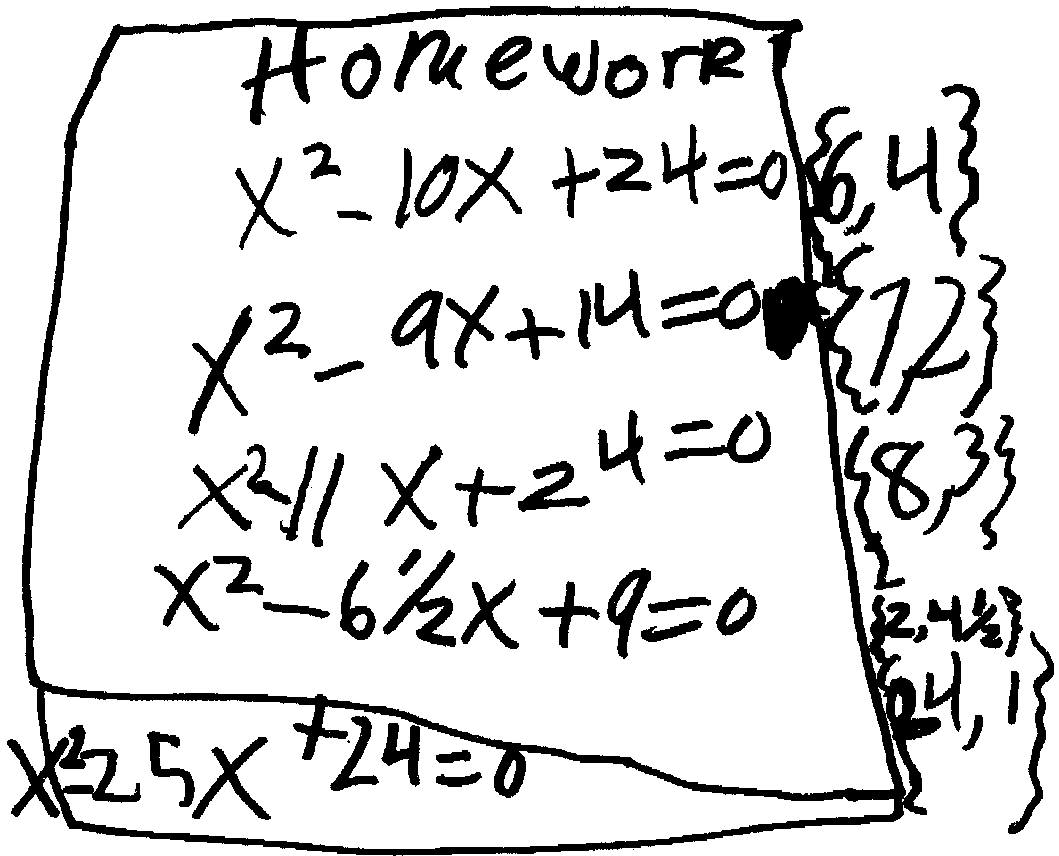 Homework
x²-10x+24=0 {6,4}
x²-9x+14=0 {7,2}
x²-11x+24=0 {8,3}
x²-6½x+9=0 {2,4½}
x²-25x+24=0 {24,1}